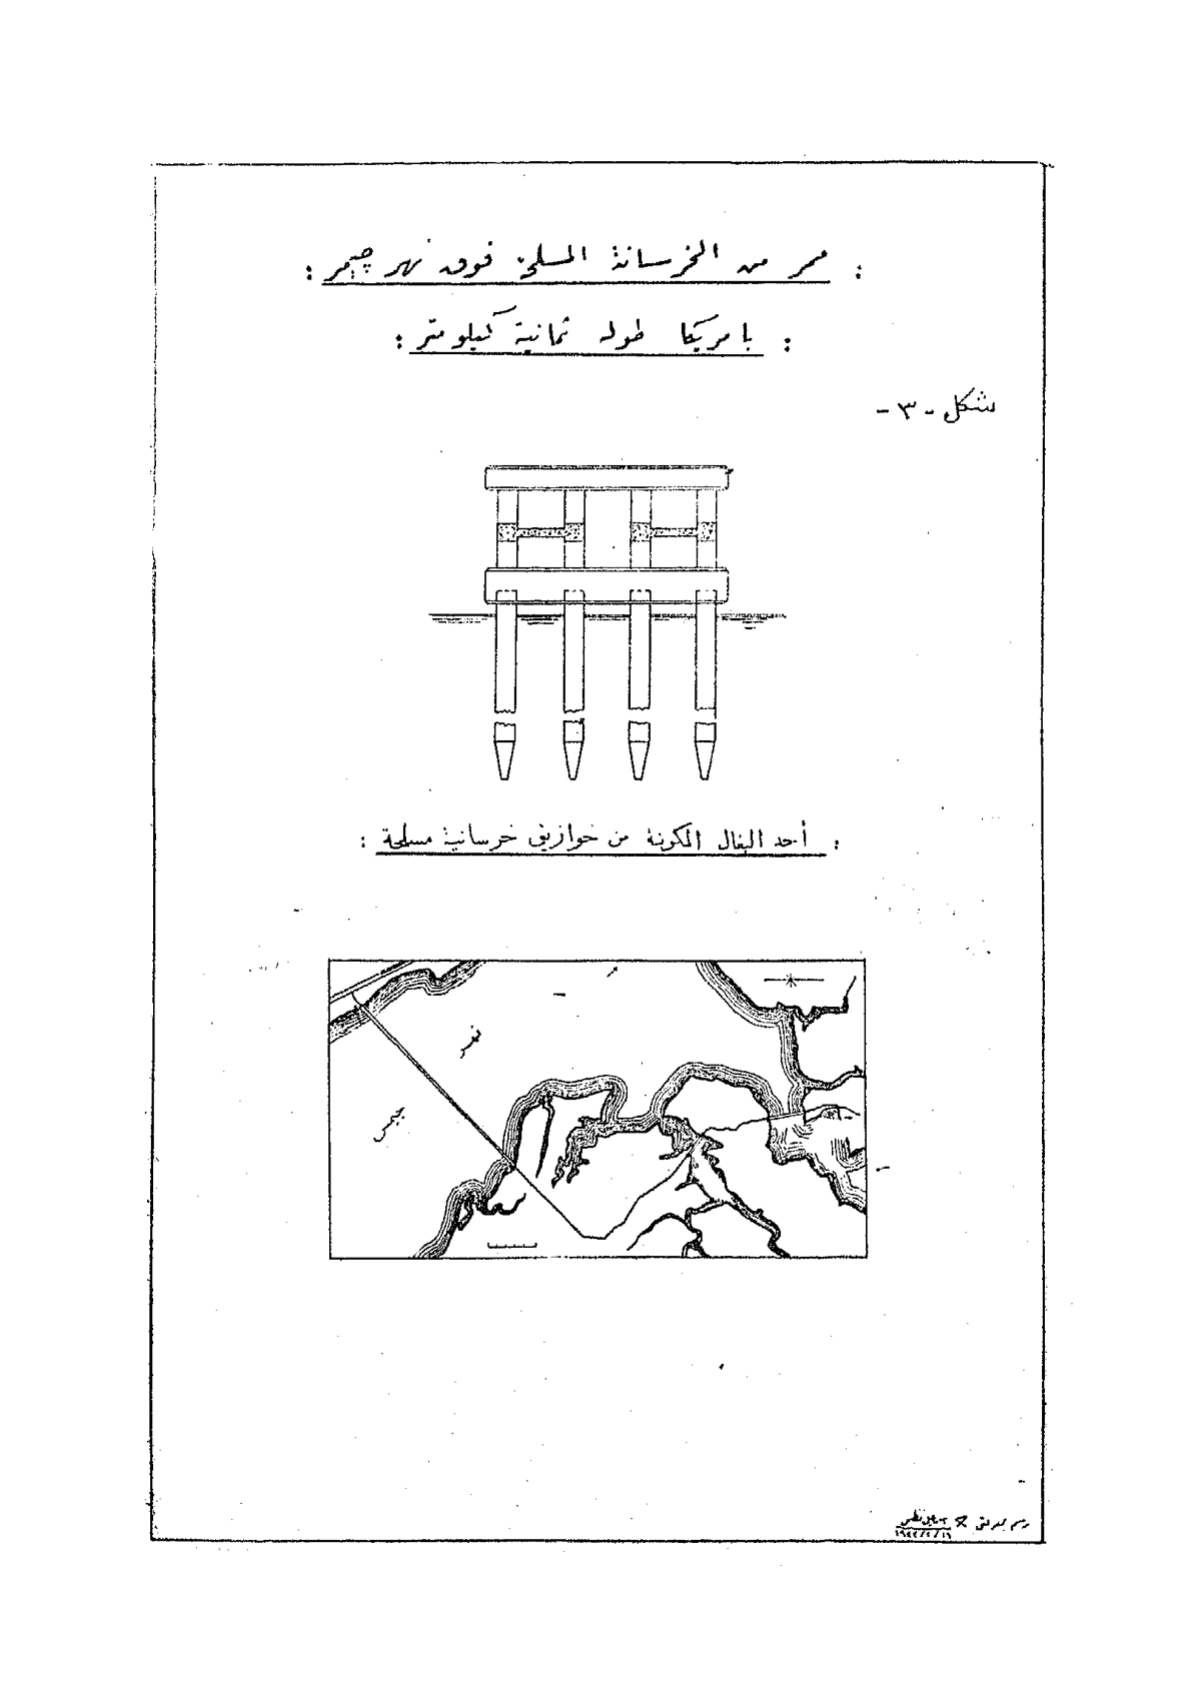 : ممر من الخرسانة المسلحة فوق نهر چيمز :
: بامريكا طوله ثمانية كيلومتر :
شكل - ٣ -
: أحد البغال المكونة من خوازيق خرسانية مسلحة :
نهر
جيمس
رسم